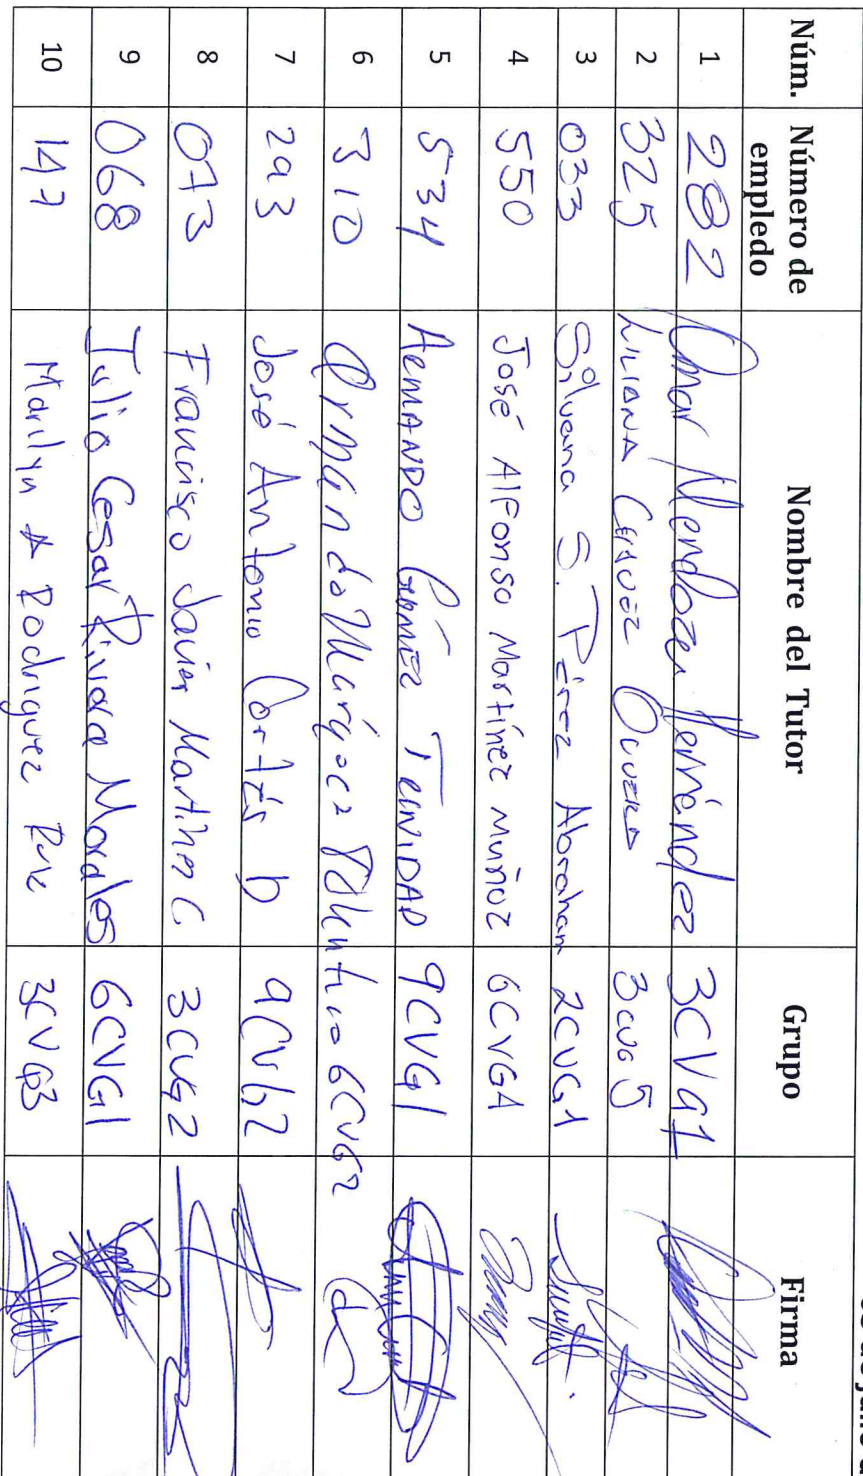 Núm. Número de empledo Nombre del Tutor Grupo Firma
1 282 Omar Mendoza Hernández 3CVG1
2 325 LILIANA CHÁVEZ OLVERA 3CVG5
3 033 Silvana S. Pérez Abraham 2CVG1
4 550 José Alfonso Martínez Muñoz 6CVG4
5 534 ARMANDO GÓMEZ TRINIDAD 9CVG1
6 310 Armando Márquez 6CVG2
7 293 José Antonio Cortés b 9CVG2
8 073 Francisco Javier Martínez C 3CVG2
9 068 Julio Cesar Rivera Morales 6CVG1
10 147 Marilyn A Rodriguez Ruiz 3CVG3